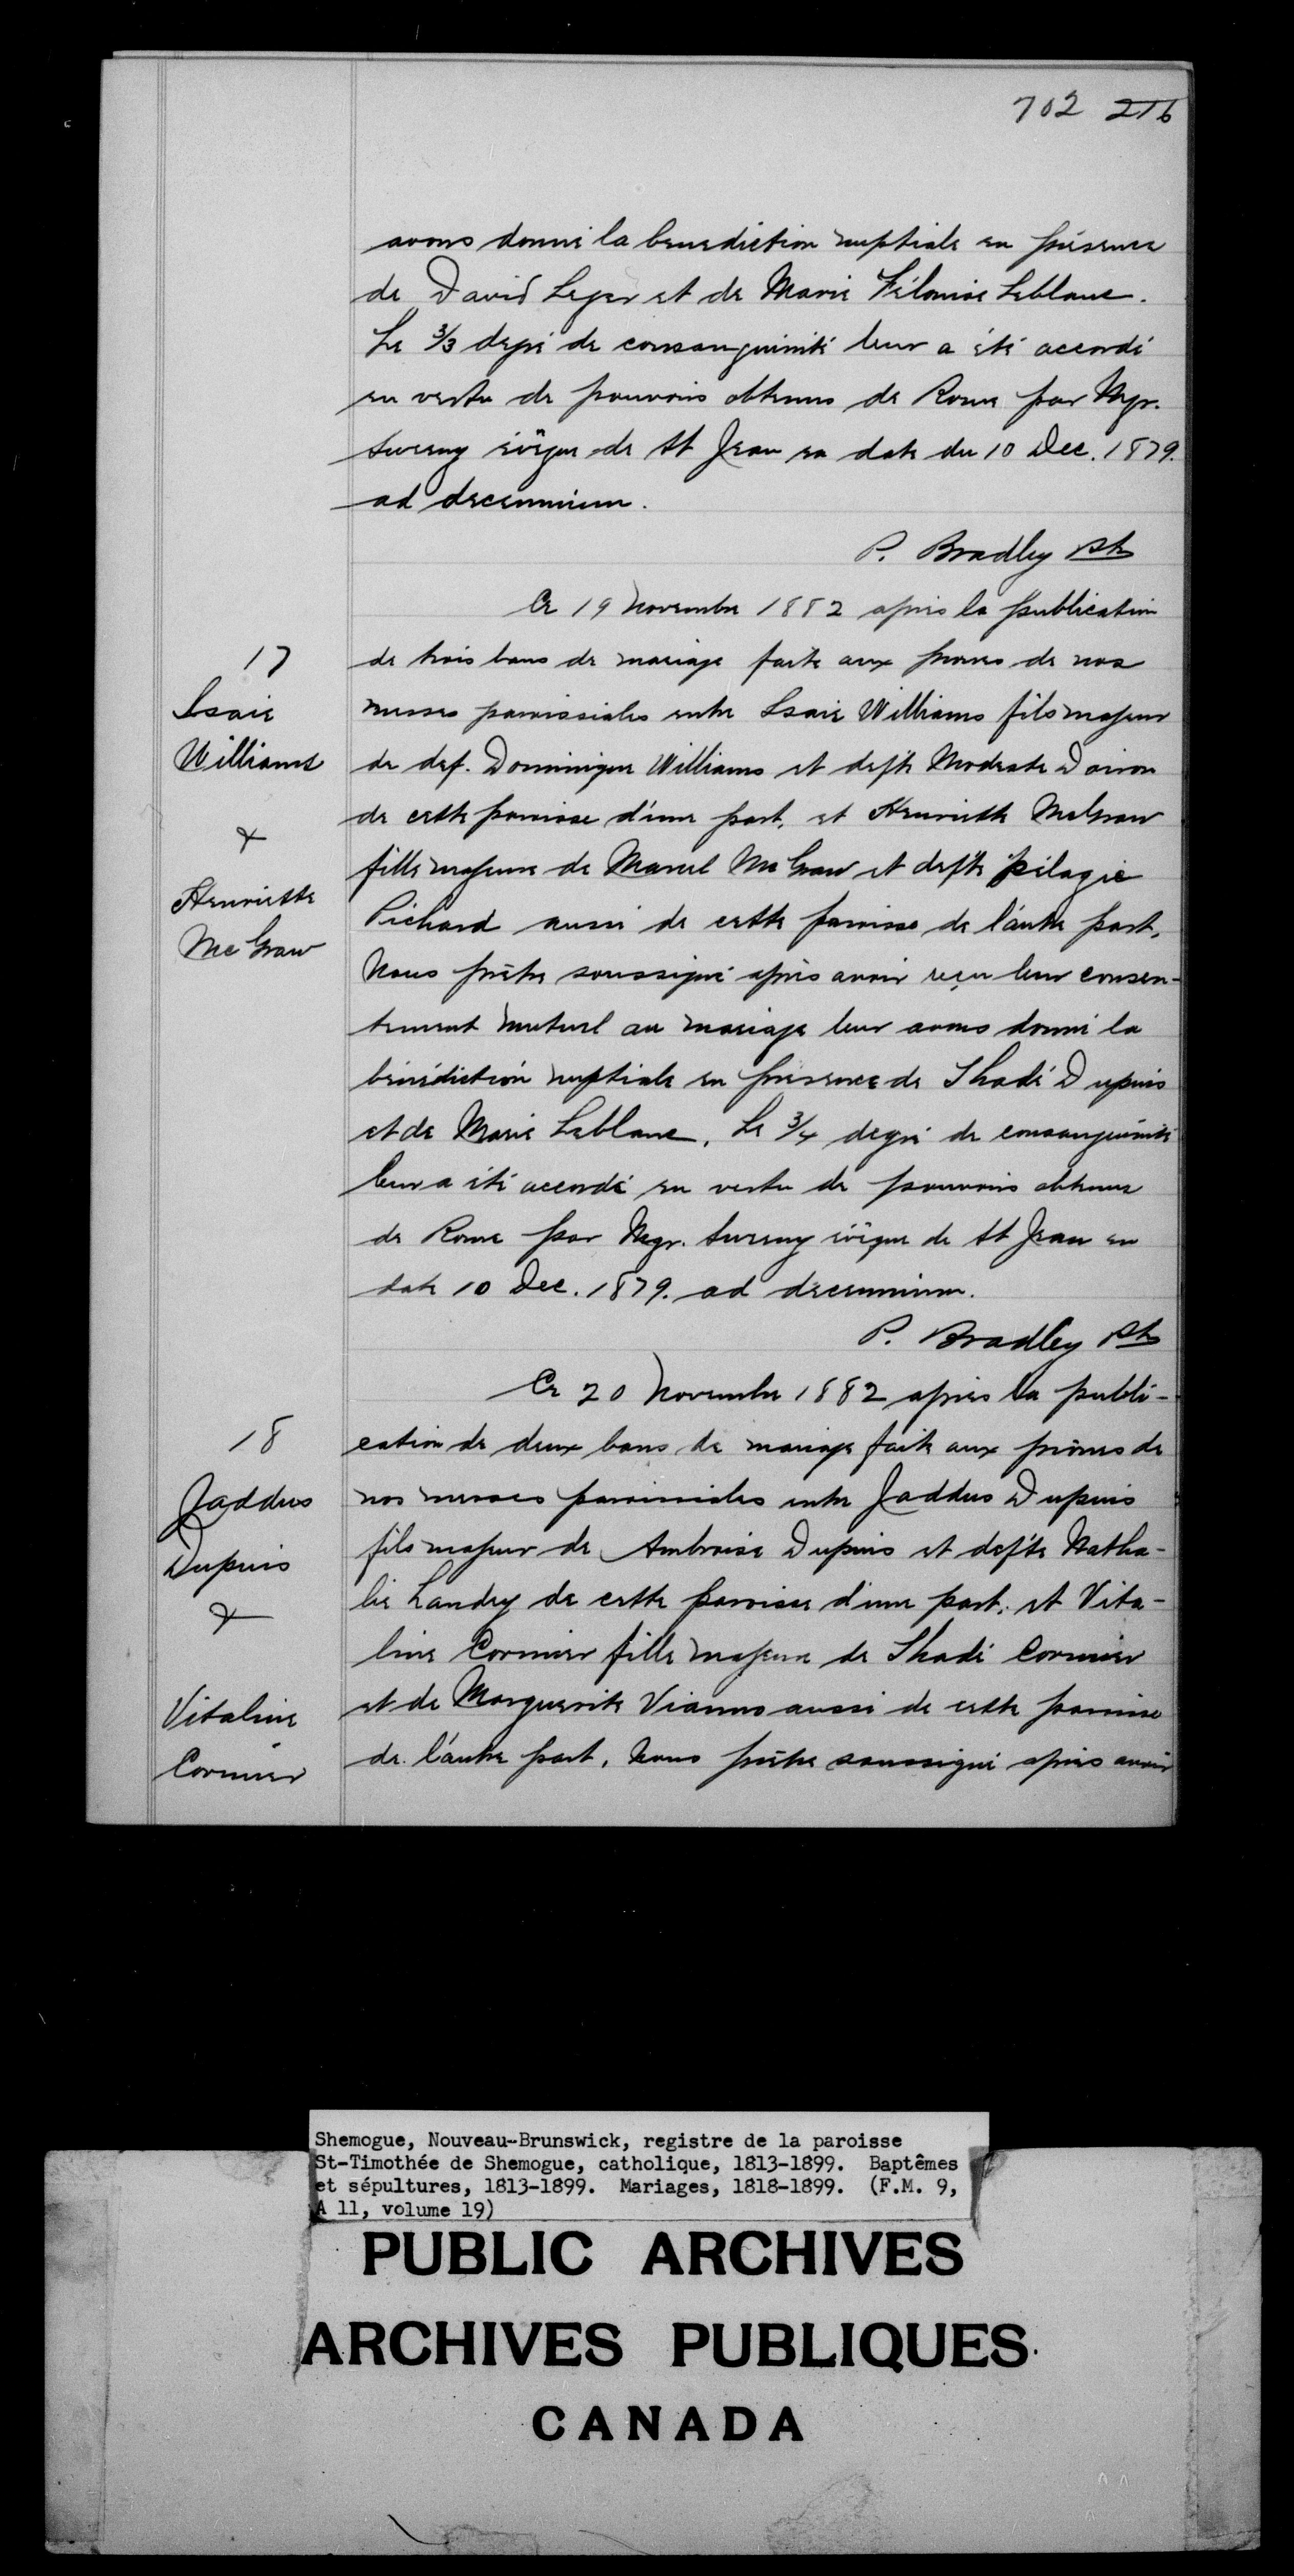 702 216
avons donné la benediction nuptiale en présence
de David Leger et de Marie Félonise Leblanc.
Le 3/3 degré de consanguinité leur a été accordé
en vertu de pouvoirs obtenus de Rome par Mgr.
Sweeny évêque de St Jean en date du 10 Dec. 1879.
ad decennium.
P. Bradley Ptr
Ce 19 novembre 1882 après la publication
17
de trois bans de mariage faite aux prones de nos
Isaie
messes paroissiales entre Isaie Williams fils majeur
Williams
de def. Dominique Williams et defte Modeste Doiron
&
de cette paroisse d'une part, et Henriette McGraw
fille majeure de Marcel McGraw et defte pélagie
Henriette
Richard aussi de cette paroisse de l'autre part,
McGraw
Nous prêtre soussigné après avoir reçu leur consen-
tement mutuel au mariage leur avons donné la
bénédiction nuptiale en presence de Thadé Dupuis
et de Marie Leblanc. Le 3/4 degré de consanguinité
leur a été accordé en vertu de pouvoirs obtenus
de Rome par Mgr. Sweeny évêque de St Jean en
date 10 Dec. 1879. ad decennium.
P. Bradley Ptr
Ce 20 novembre 1882 après la publi-
18
cation de deux bans de mariage faite aux prônes de
Jaddus
nos messes paroissiales entre Jaddus Dupuis
Dupuis
fils majeur de Ambroise Dupuis et defte Natha-
&
lie Landry de cette paroisse d'une part, et Vita-
line Cormier fille majeure de Thadé Cormier
Vitaline
et de Marguerite Vienno aussi de cette paroisse
Cormier
de l'autre part, Nous prêtre soussigné après avoir
Shemogue, Nouveau-Brunswick, registre de la paroisse
St-Timothée de Shemogue, catholique, 1813-1899. Baptêmes
et sépultures, 1813-1899. Mariages, 1818-1899. (F.M. 9,
A 11, volume 19)
PUBLIC ARCHIVES
ARCHIVES PUBLIQUES
CANADA